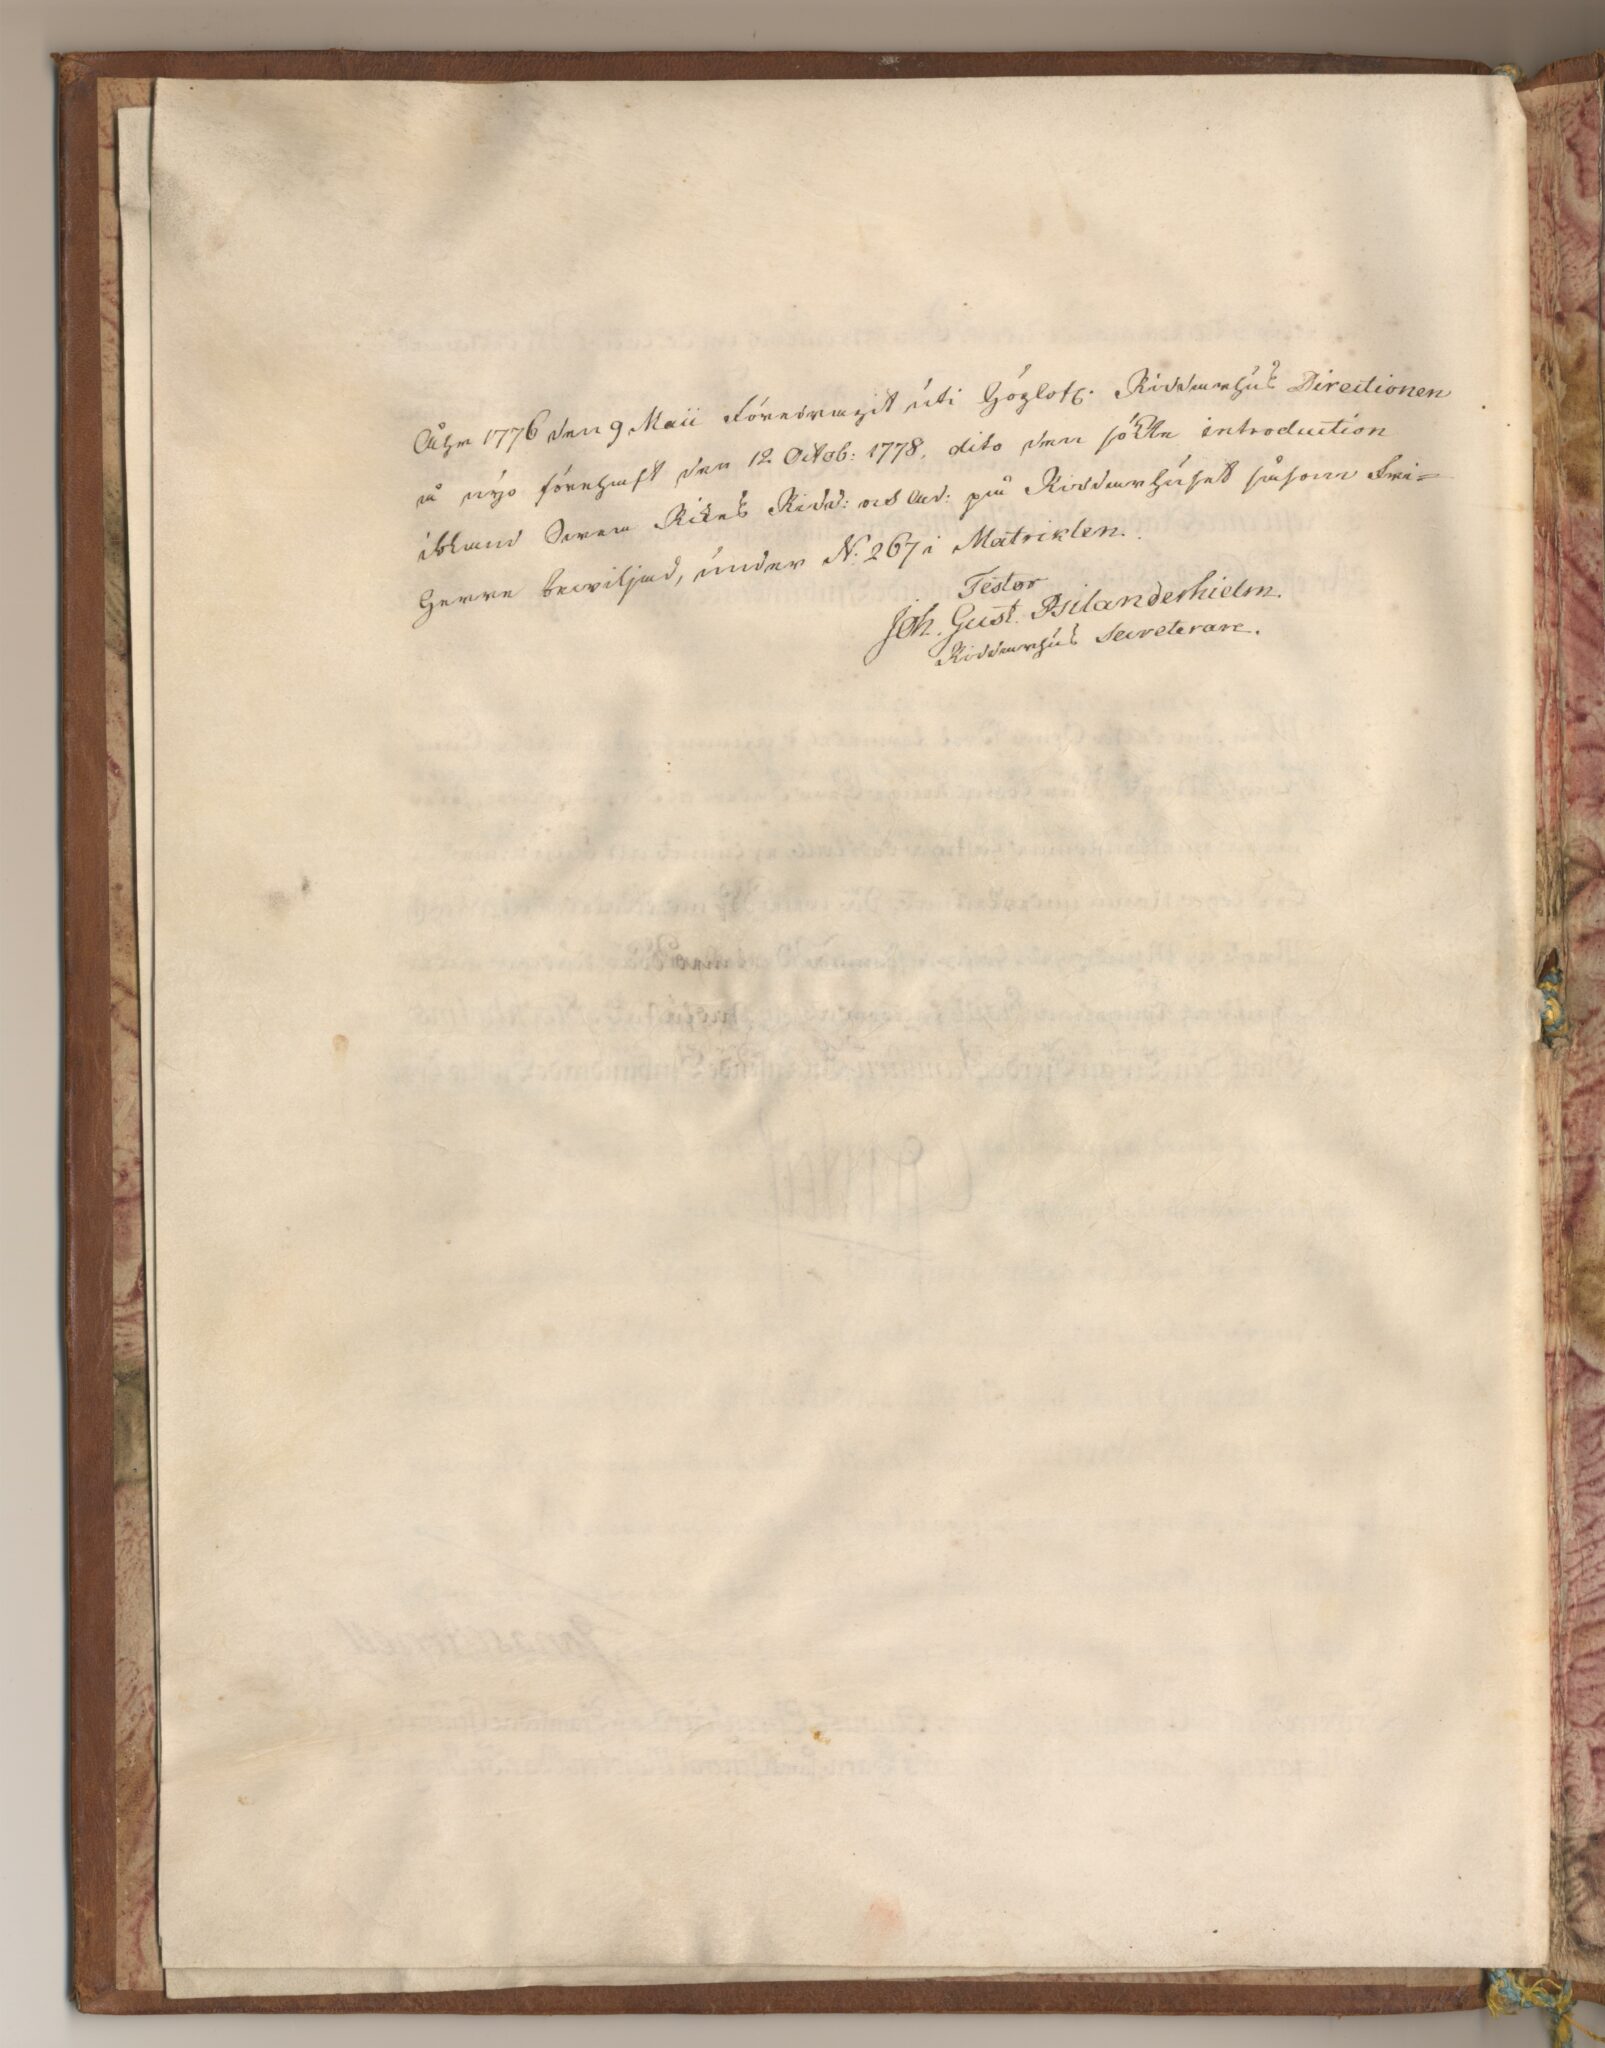 Åhr 1776 den 9 Maii Föredragit uti Höglofl. Riddarhus Directionen
å nyo förehaft den 12 Octob: 1778. dito den sökte introduction
ibland Svea Rikes Ridd: och Ad: på Riddarhuset såsom Fri=
herre beviljad, under N. 267 i Matriklen.
Testor
Joh. Gust. Psilanderhielm.
Riddarhus Secreterare.